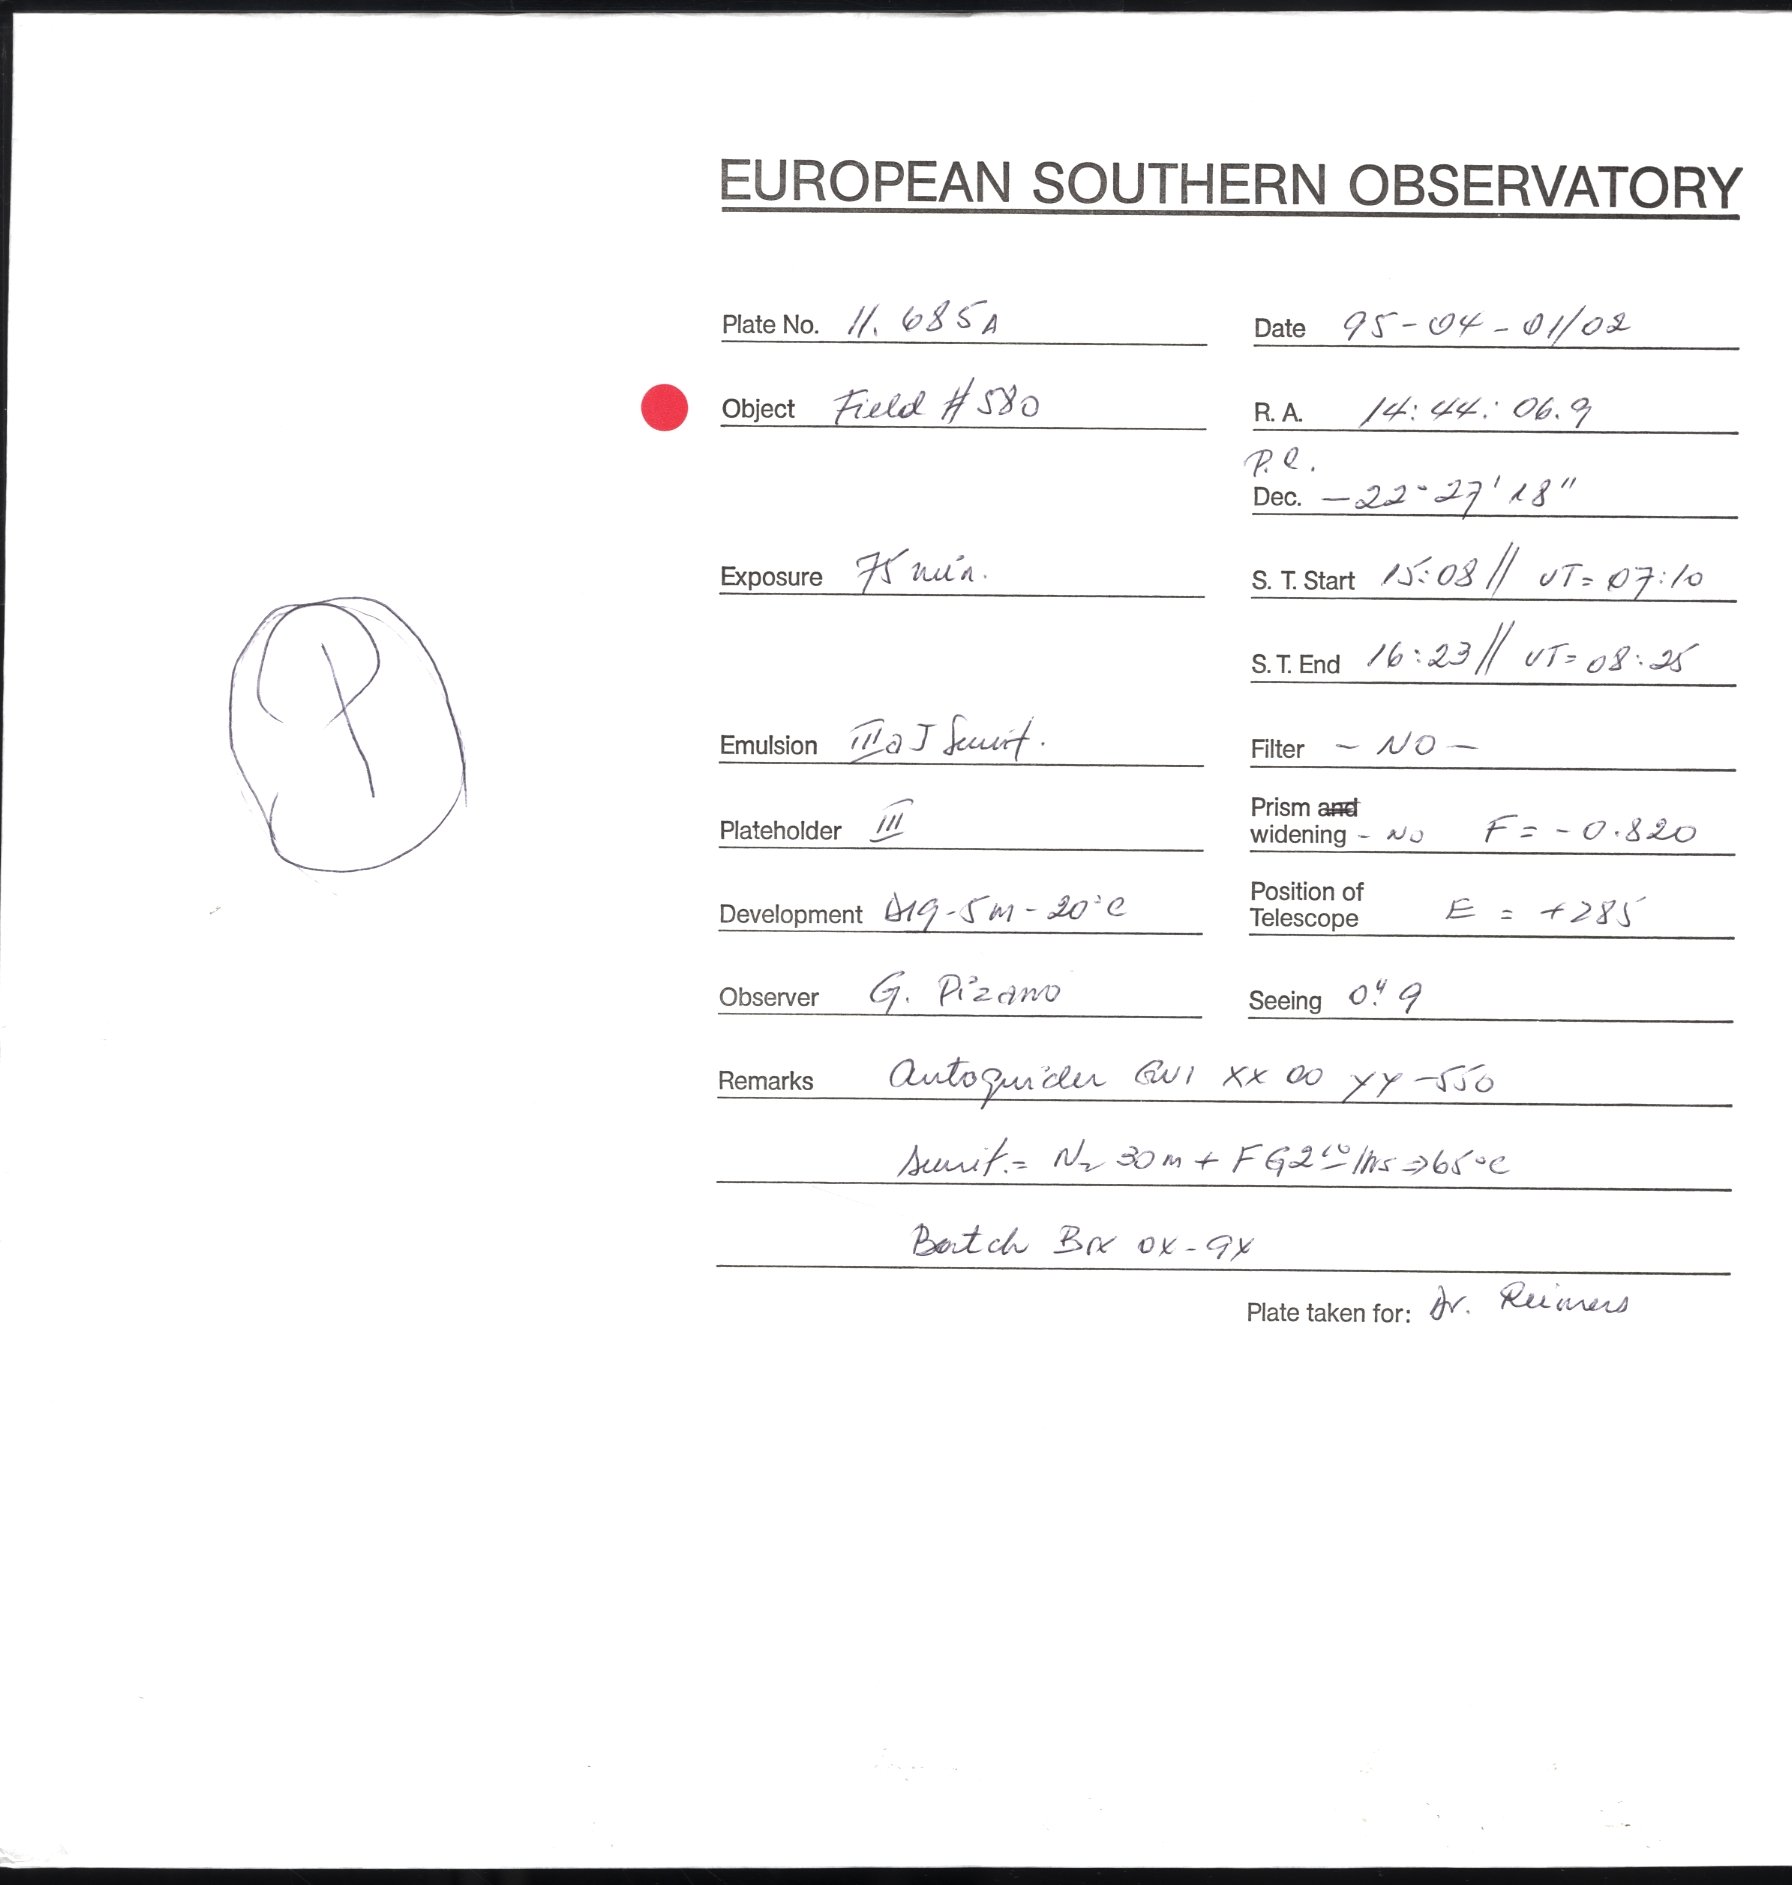 EUROPEAN SOUTHERN OBSERVATORY
Plate No. 11.685A Date 95-04-01/02
Object Field #580 R. A. 14:44:06.9
P.E.
Dec. -22°27'18"
Exposure 75 min. S. T. Start 15:08 // UT=07:10
S. T. End 16:23 // UT=08:25
Emulsion IIIaJ Filter - NO -
Plateholder III Prism and widening - NO F = -0.820
Development D19-5m-20°C Position of Telescope E = +285
Observer G. Pizarro Seeing 0."9
Remarks Autoguider GV1 XX 00 YY -550
N2 30m + FG 2 hrs => 65°C
Batch
Plate taken for: Dr. Reimers